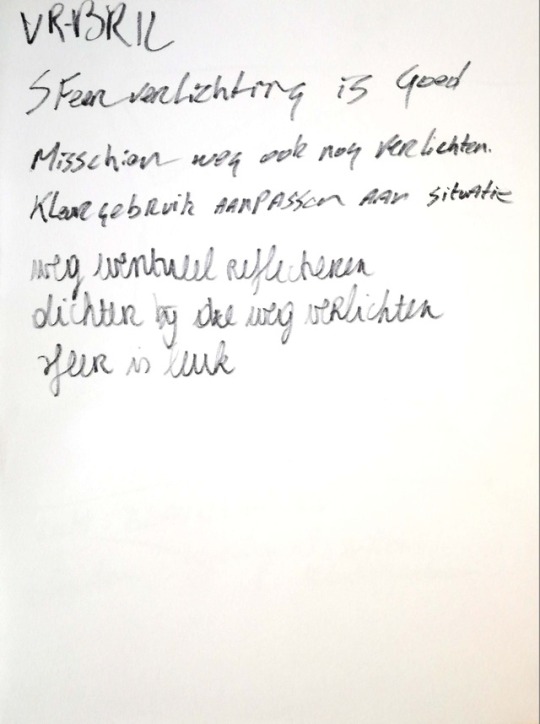 VR-BRIL
SFeerverlichting is Goed
Misschien weg ook nog verlichten.
Kleurgebruik AANPASSen AAN situatie
weg eventueel reflecteren
dichter bij die weg verlichten
sfeer is leuk